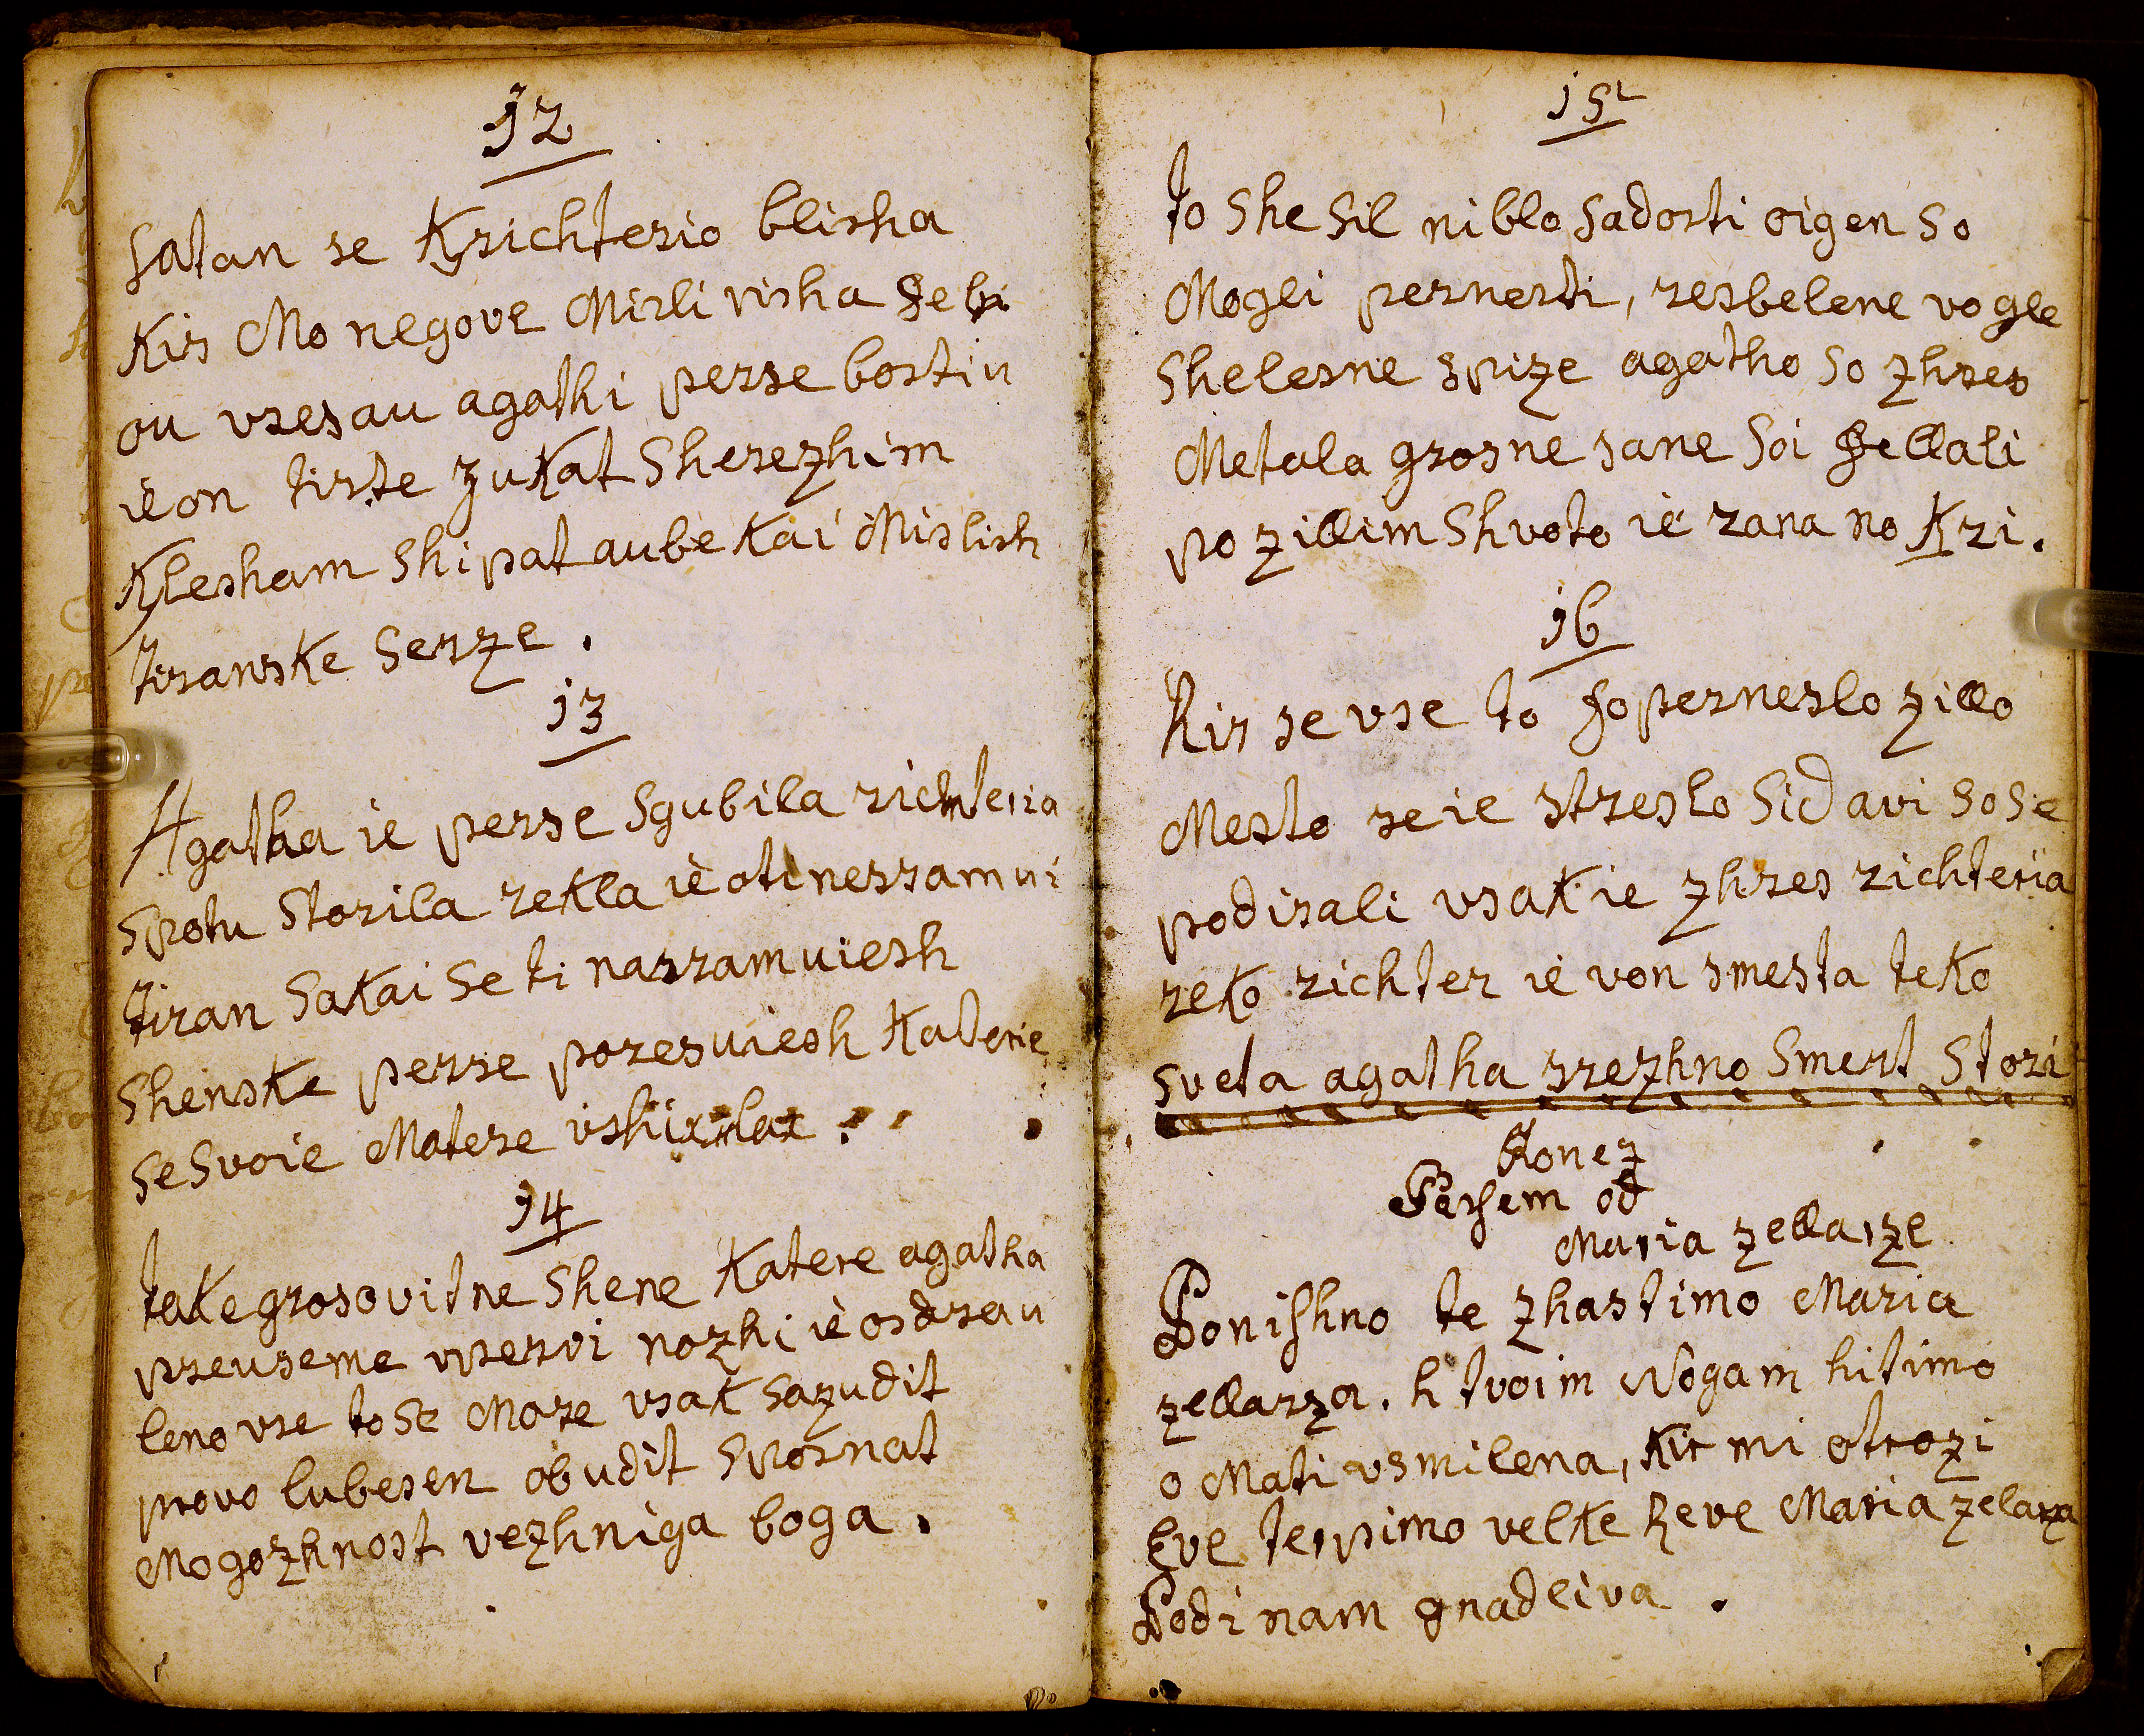 12
satan se Krichterio blisha
Kir Mo negove Misli risha Se bi
ou vresau agathi perse bostiu
ie on tirte zukat Sherezhim
Klesham Shipat aube Kai Mislish
tiranske Serze.
13
Agatha ie perse Sgubila richteria
Spotu Storila rekla ie oti nessramui
tiran Sakai Se ti nassramuiesh
Shenske perse poresuiesh Katerie
Se Svoie Matere vshival
14
take grosovitne Shene Katere agatha
preuseme vpervi nozhi ie osdrau
leno vse to Se More vsak Sazudit
provo lubesen obudit Sposnat
Mogozhnost vezhniga boga.
15
to She Sil ni blo Sadosti oigen So
Mogli pernesti, resbelene vogle
Shelesne Spize agatho So zhres
Metala grosne rane Soi Sellali
po zillim Shvoto ie rana no Kri.
16
Kir se vse to SopernesLo zillo
Mesto se ie stresLo Sidavi So Se
podirali vsak ie zhres richteria
reko richter ie von smesta teko
sveta agatha srezhno Smert Stori
Konez
Persem od
Maria zellarze
Ponishno te zhastimo Maria
zellarza. h tvoim Nogam hitimo
o Mati vsmilena, Kir mi otrozi
Eve terpimo velke Reve Maria zelarza
Bodi nam gnadliva.